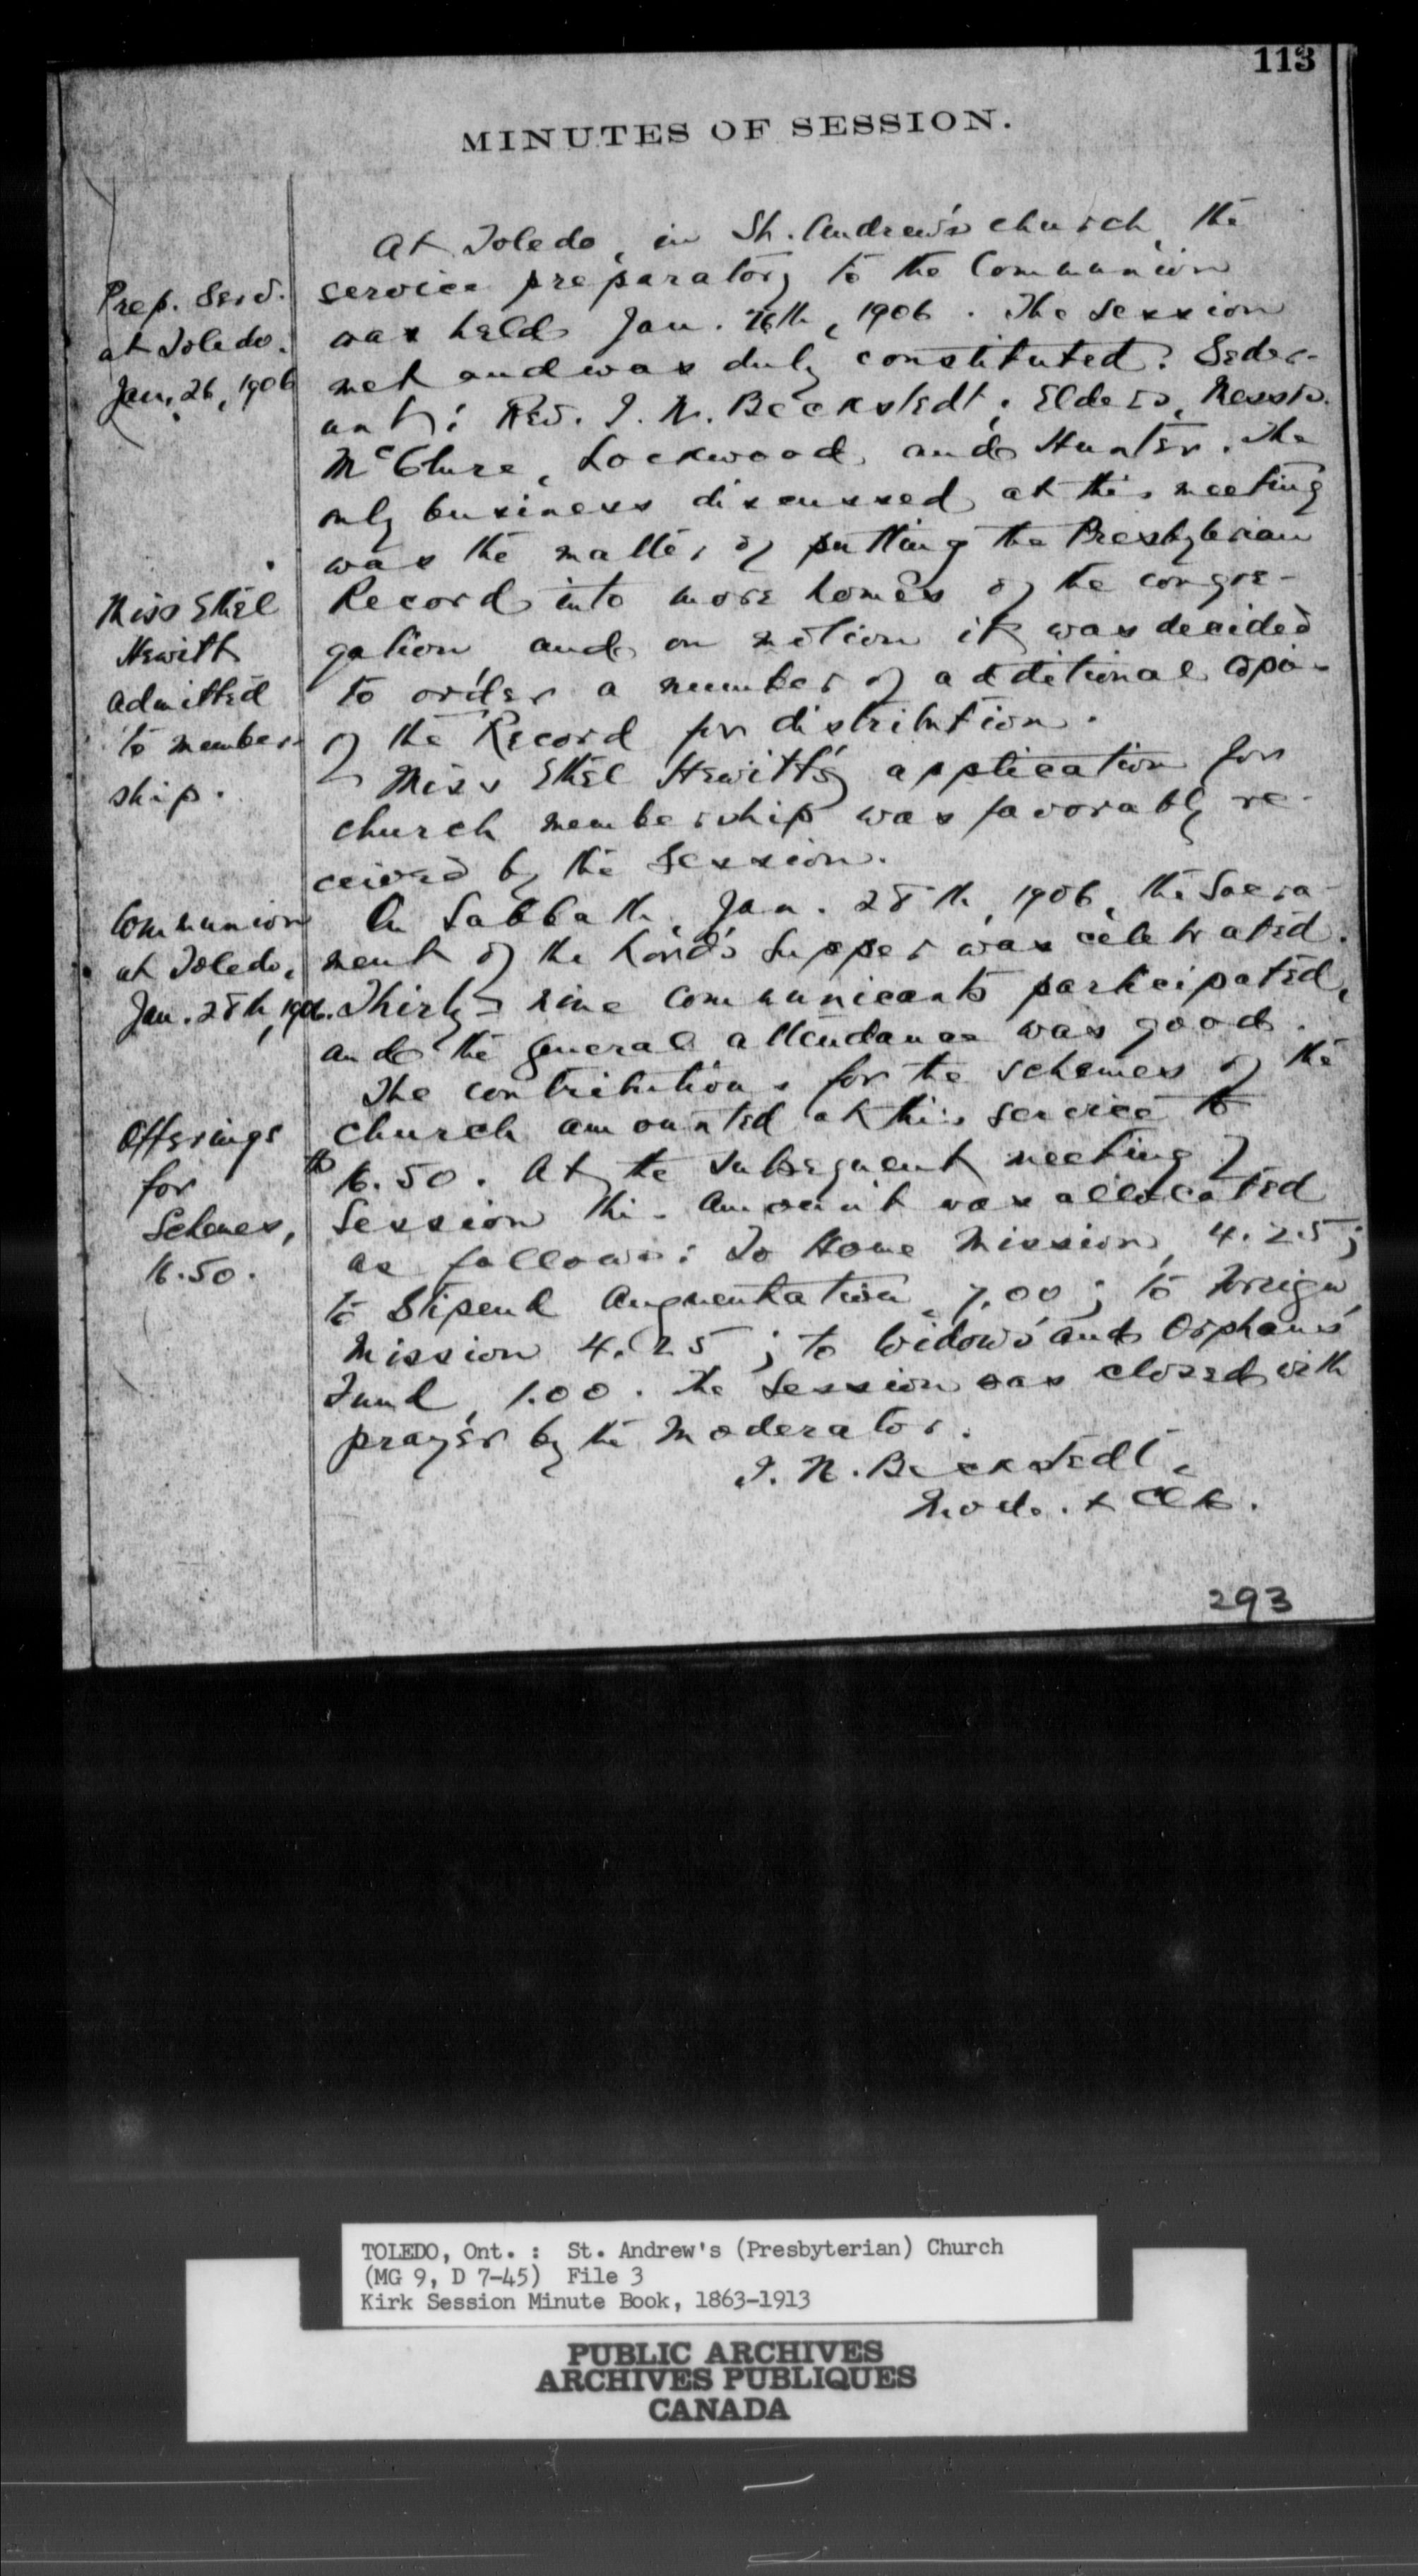 113
MINUTES OF SESSION.
Prep. Serv.
at Toledo.
Jan. 26, 1906
At Toledo, in St. Andrew's church, the
service preparatory to the Communion
was held Jan. 26th, 1906. The Session
met and was duly constituted. Seder-
unt: Rev. I. N. Beckstedt; Elders, Messrs.
McClure, Lockwood and Hunter. The
only business discussed at this meeting
was the matter of putting the Presbyterian
Miss Ethel
Hewitt
admitted
to member-
ship.
Record into more homes of the congre-
gation and on motion it was decided
to order a number of additional copies
of the Record for distribution.
Miss Ethel Hewitt's application for
church membership was favorably re-
ceived by the Session.
Communion
at Toledo,
Jan. 28th, 1906.
On Sabbath, Jan. 28th, 1906, the Sacra-
ment of the Lord's Supper was celebrated.
Thirty-nine communicants participated,
and the general attendance was good.
The contributions for the schemes of the
Offerings
for
Schemes,
16.50.
church amounted at this service to
$16.50. At the subsequent meeting of
Session this amount was allocated
as follows: To Home Mission, 4.25;
to Stipend Augmentation, 7.00; to Foreign
Mission 4.25; to Widows' and Orphans'
Fund, 1.00. The Session was closed with
prayer by the Moderator.
I. N. Beckstedt,
Mod. & Clk.
293
TOLEDO, Ont. : St. Andrew's (Presbyterian) Church
(MG 9, D 7-45) File 3
Kirk Session Minute Book, 1863-1913
PUBLIC ARCHIVES
ARCHIVES PUBLIQUES
CANADA